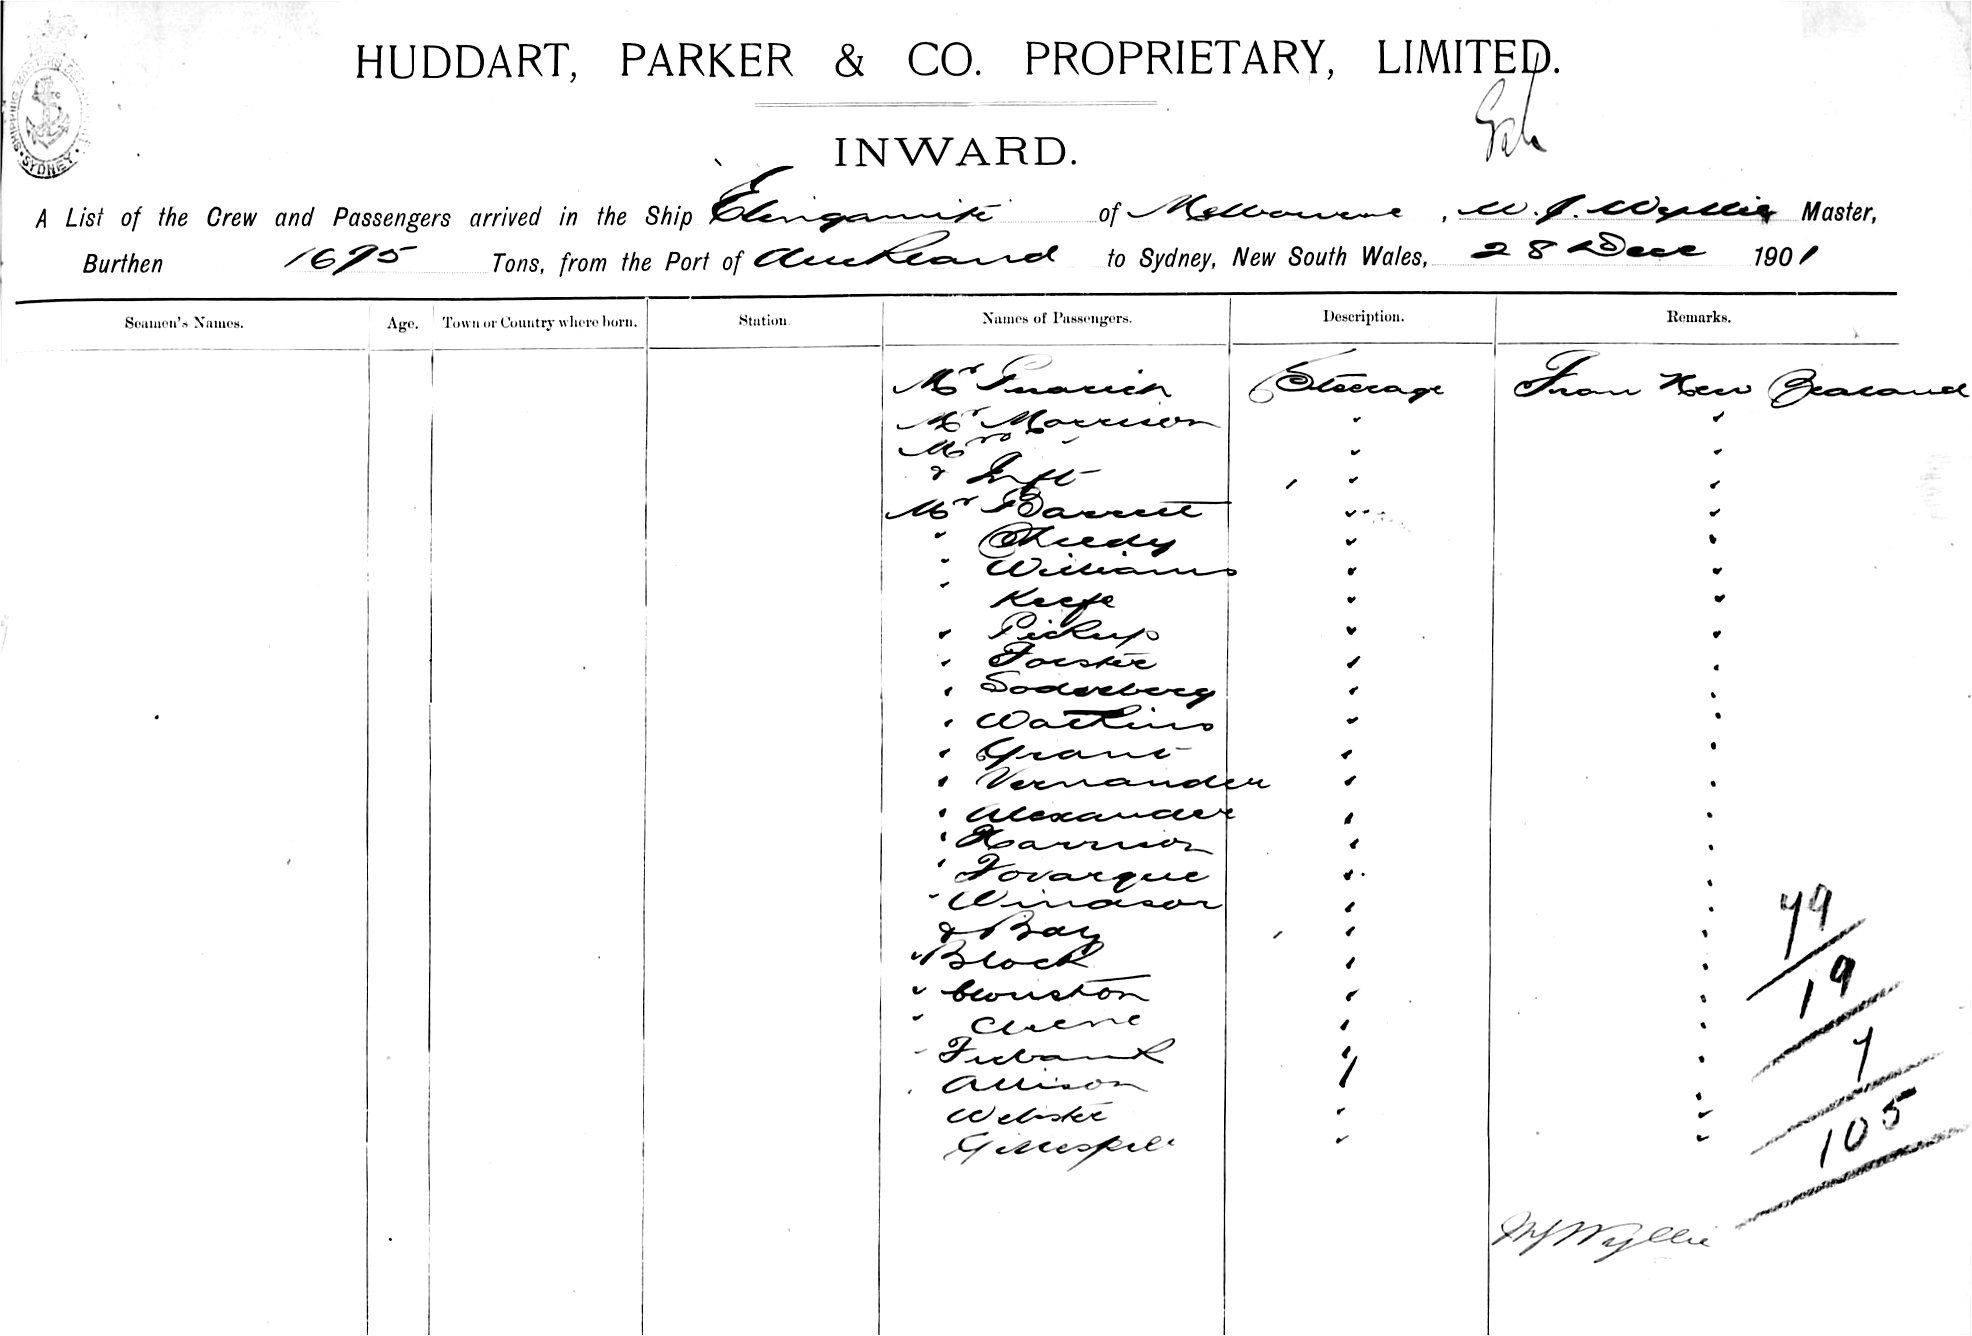 HUDDART, PARKER & CO. PROPRIETARY, LIMITED.
INWARD.
SYDNEY
A List of the Crew and Passengers arrived in the Ship Elingamite of Melbourne, W. J. Wyllie Master,
Burthen 1695 Tons, from the Port of Auckland to Sydney, New South Wales, 28 Dec 1901
Seamen's Names. Age. Town or Country where born. Station. Names of Passengers. Description. Remarks.
Mr Steerage From New Zealand
Mr Morrison " "
Mrs " " "
& Inft " "
Mr Barrett " "
" Sheedy " "
" Williams " "
" Keefe " "
" Pickup " "
" Forster " "
" Soderberg " "
" Watkins " "
" Grant " "
" Vernander " "
" Alexander " "
" Harrison " "
" Fovarque " "
" Windsor " "
& Boy " "
" Block " "
" Clouston " "
" " "
" " "
" Allison " "
Webster " "
Gillespie " "
79
19
7
105
W J Wyllie